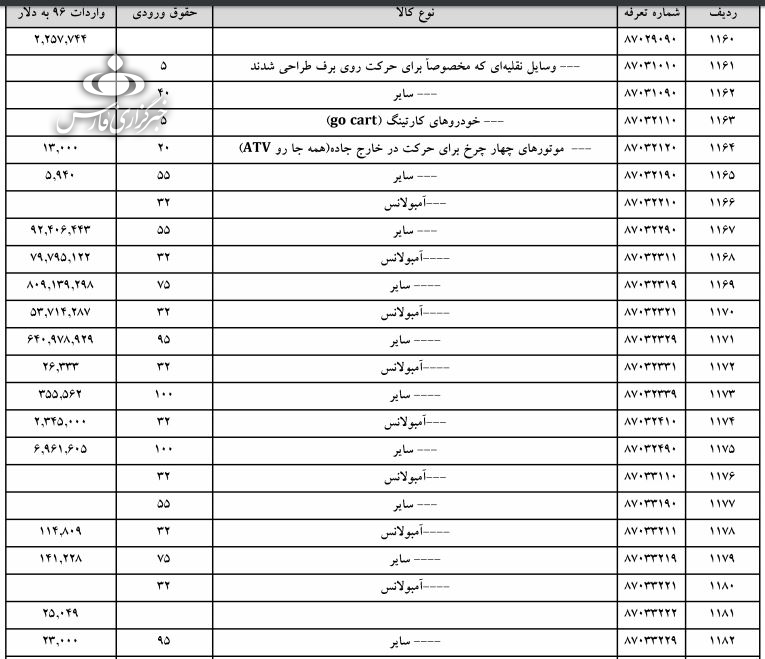 ردیف شماره تعرفه نوع کالا حقوق ورودی واردات ۹۶ به دلار
۱۱۶۰ ۸۷۰۲۹۰۹۰ ۲,۲۵۷,۷۴۴
۱۱۶۱ ۸۷۰۳۱۰۱۰ --- وسایل نقلیه‌ای که مخصوصاً برای حرکت روی برف طراحی شدند ۵
۱۱۶۲ ۸۷۰۳۱۰۹۰ --- سایر ۴۰
۱۱۶۳ ۸۷۰۳۲۱۱۰ --- خودروهای کارتینگ (go cart) ۵
۱۱۶۴ ۸۷۰۳۲۱۲۰ --- موتورهای چهار چرخ برای حرکت در خارج جاده(همه جا رو ATV) ۲۰ ۱۳,۰۰۰
۱۱۶۵ ۸۷۰۳۲۱۹۰ --- سایر ۵۵ ۵,۹۴۰
۱۱۶۶ ۸۷۰۳۲۲۱۰ ---آمبولانس ۳۲
۱۱۶۷ ۸۷۰۳۲۲۹۰ --- سایر ۵۵ ۹۲,۴۰۶,۴۴۳
۱۱۶۸ ۸۷۰۳۲۳۱۱ ----آمبولانس ۳۲ ۷۹,۷۹۵,۱۲۲
۱۱۶۹ ۸۷۰۳۲۳۱۹ ---- سایر ۷۵ ۸۰۹,۱۳۹,۲۹۸
۱۱۷۰ ۸۷۰۳۲۳۲۱ ----آمبولانس ۳۲ ۵۳,۷۱۴,۲۸۷
۱۱۷۱ ۸۷۰۳۲۳۲۹ ---- سایر ۹۵ ۶۴۰,۹۷۸,۹۲۹
۱۱۷۲ ۸۷۰۳۲۳۳۱ ----آمبولانس ۳۲ ۲۶,۳۳۳
۱۱۷۳ ۸۷۰۳۲۳۳۹ ---- سایر ۱۰۰ ۳۵۵,۵۶۲
۱۱۷۴ ۸۷۰۳۲۴۱۰ ---آمبولانس ۳۲ ۲,۳۴۵,۰۰۰
۱۱۷۵ ۸۷۰۳۲۴۹۰ --- سایر ۱۰۰ ۶,۹۶۱,۶۰۵
۱۱۷۶ ۸۷۰۳۳۱۱۰ ---آمبولانس ۳۲
۱۱۷۷ ۸۷۰۳۳۱۹۰ --- سایر ۵۵
۱۱۷۸ ۸۷۰۳۳۲۱۱ ----آمبولانس ۳۲ ۱۱۴,۸۰۹
۱۱۷۹ ۸۷۰۳۳۲۱۹ ---- سایر ۷۵ ۱۴۱,۲۲۸
۱۱۸۰ ۸۷۰۳۳۲۲۱ ----آمبولانس ۳۲
۱۱۸۱ ۸۷۰۳۳۲۲۲ ۲۵,۰۴۹
۱۱۸۲ ۸۷۰۳۳۲۲۹ ---- سایر ۹۵ ۲۳,۰۰۰
خبرگزاری فارس